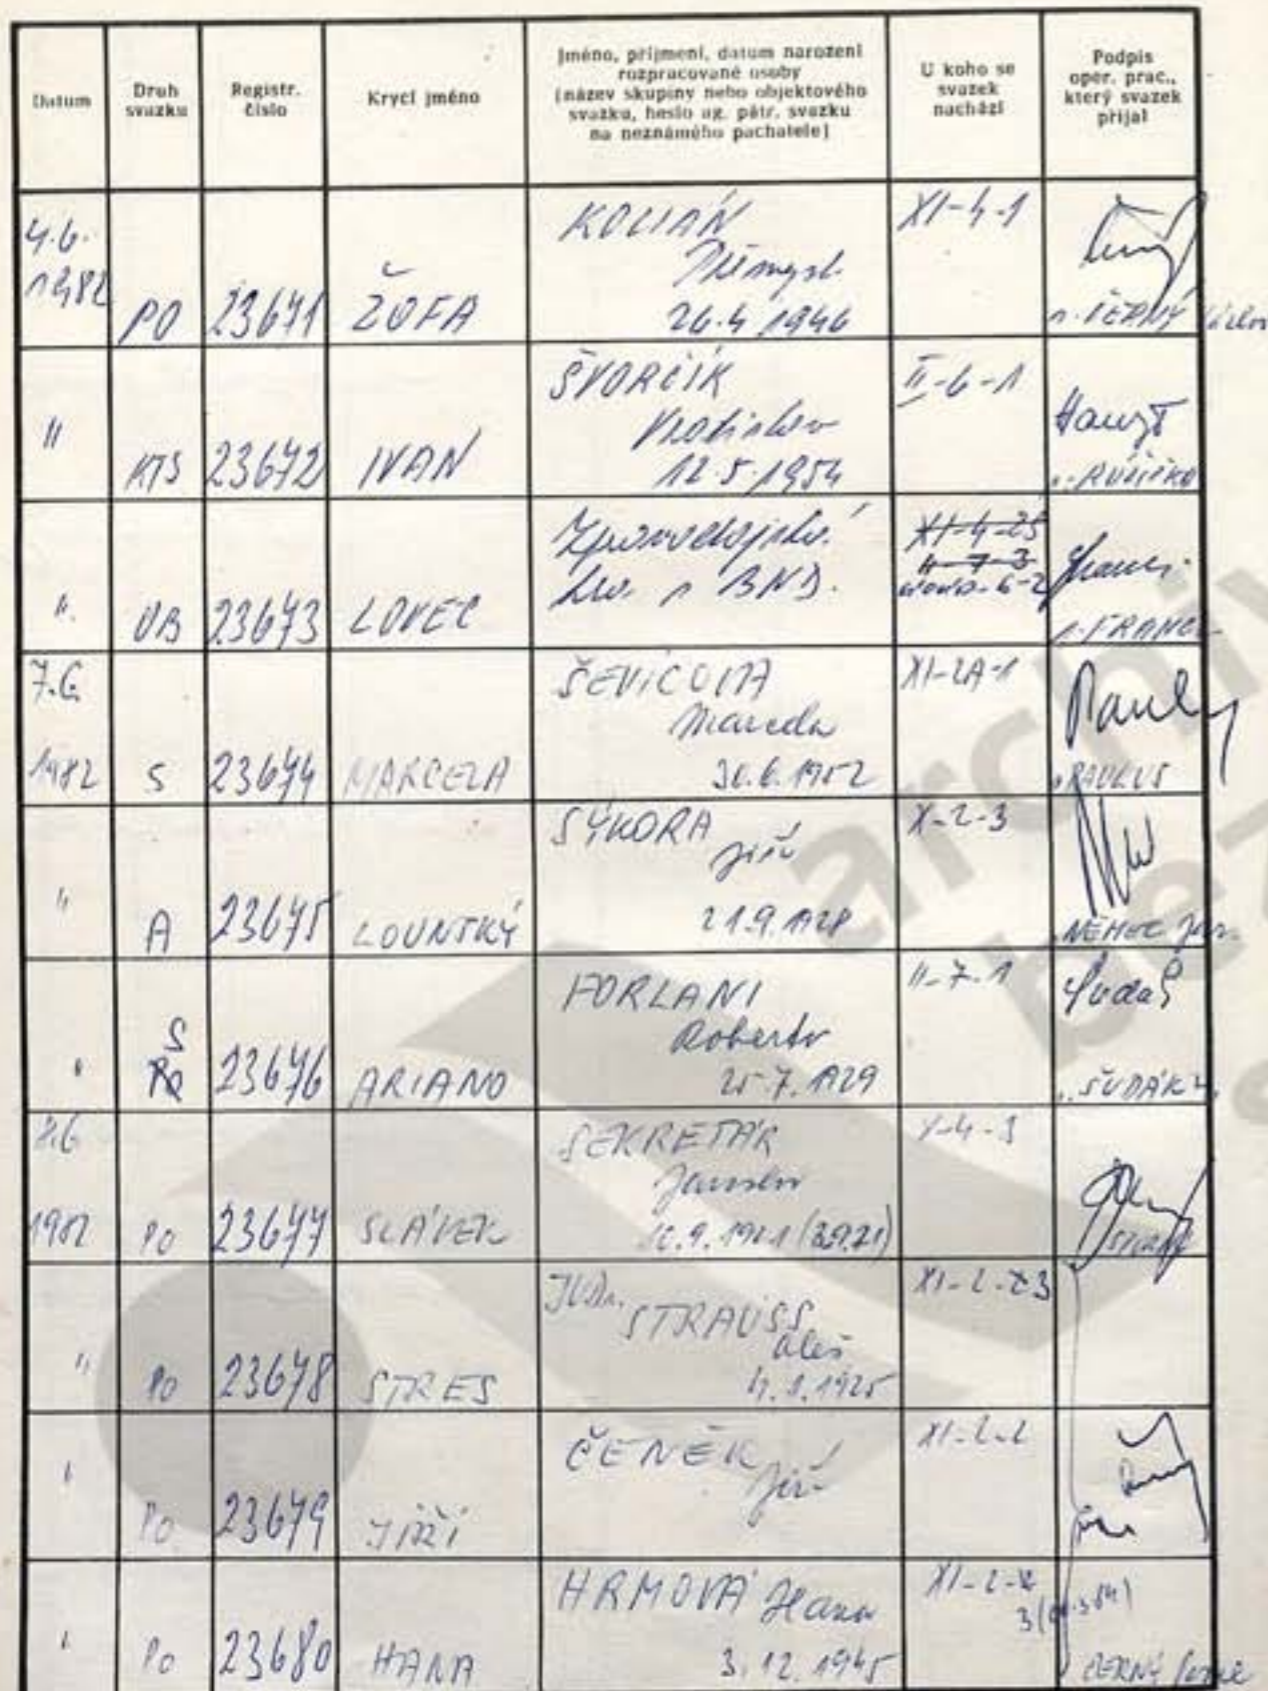 Datum
Druh
svazku
Registr.
číslo
Krycí jméno
Jméno, příjmení, datum narození
rozpracované osoby
(název skupiny nebo objektového
svazku, heslo ag. pátr. svazku
na neznámého pachatele)
U koho se
svazek
nachází
Podpis
oper. prac.,
který svazek
přijal
4.6.
1982
PO
23671
ŽOFA
KOLIÁN
Přemysl
26.4 1946
XI-4-1
ČERNÝ
"
KTS
23672
IVAN
ŠVORČÍK
Vratislav
12.5.1954
II-6-1
RŮŽIČKA
"
23673
LOVEC
BND.
XI-4-25
II-7-3
FRANC
7.6
1982
S
23674
MARCELA
ŠEVICOVÁ
Marcela
1952
XI-2A-1
PAULUS
"
A
23675
LOUNSKÝ
SÝKORA
Jiří
21.9.1928
X-2-3
NĚMEC Jar.
"
S
PO
23676
ARIANO
FORLANI
Roberto
25.7.1929
II-7-1
ŠUDÁK
1982
PO
23677
SLÁVEK
SEKRETÁR
Jaroslav
"
PO
23678
STRES
JUDr.
STRAUSS
Aleš
1925
"
PO
23679
JIŘÍ
ČENĚK
Jiří
XI-2-2
"
PO
23680
HANA
HRMOVÁ Hana
3.12.1945
XI-2-
3
ČERNÝ
archiv
be